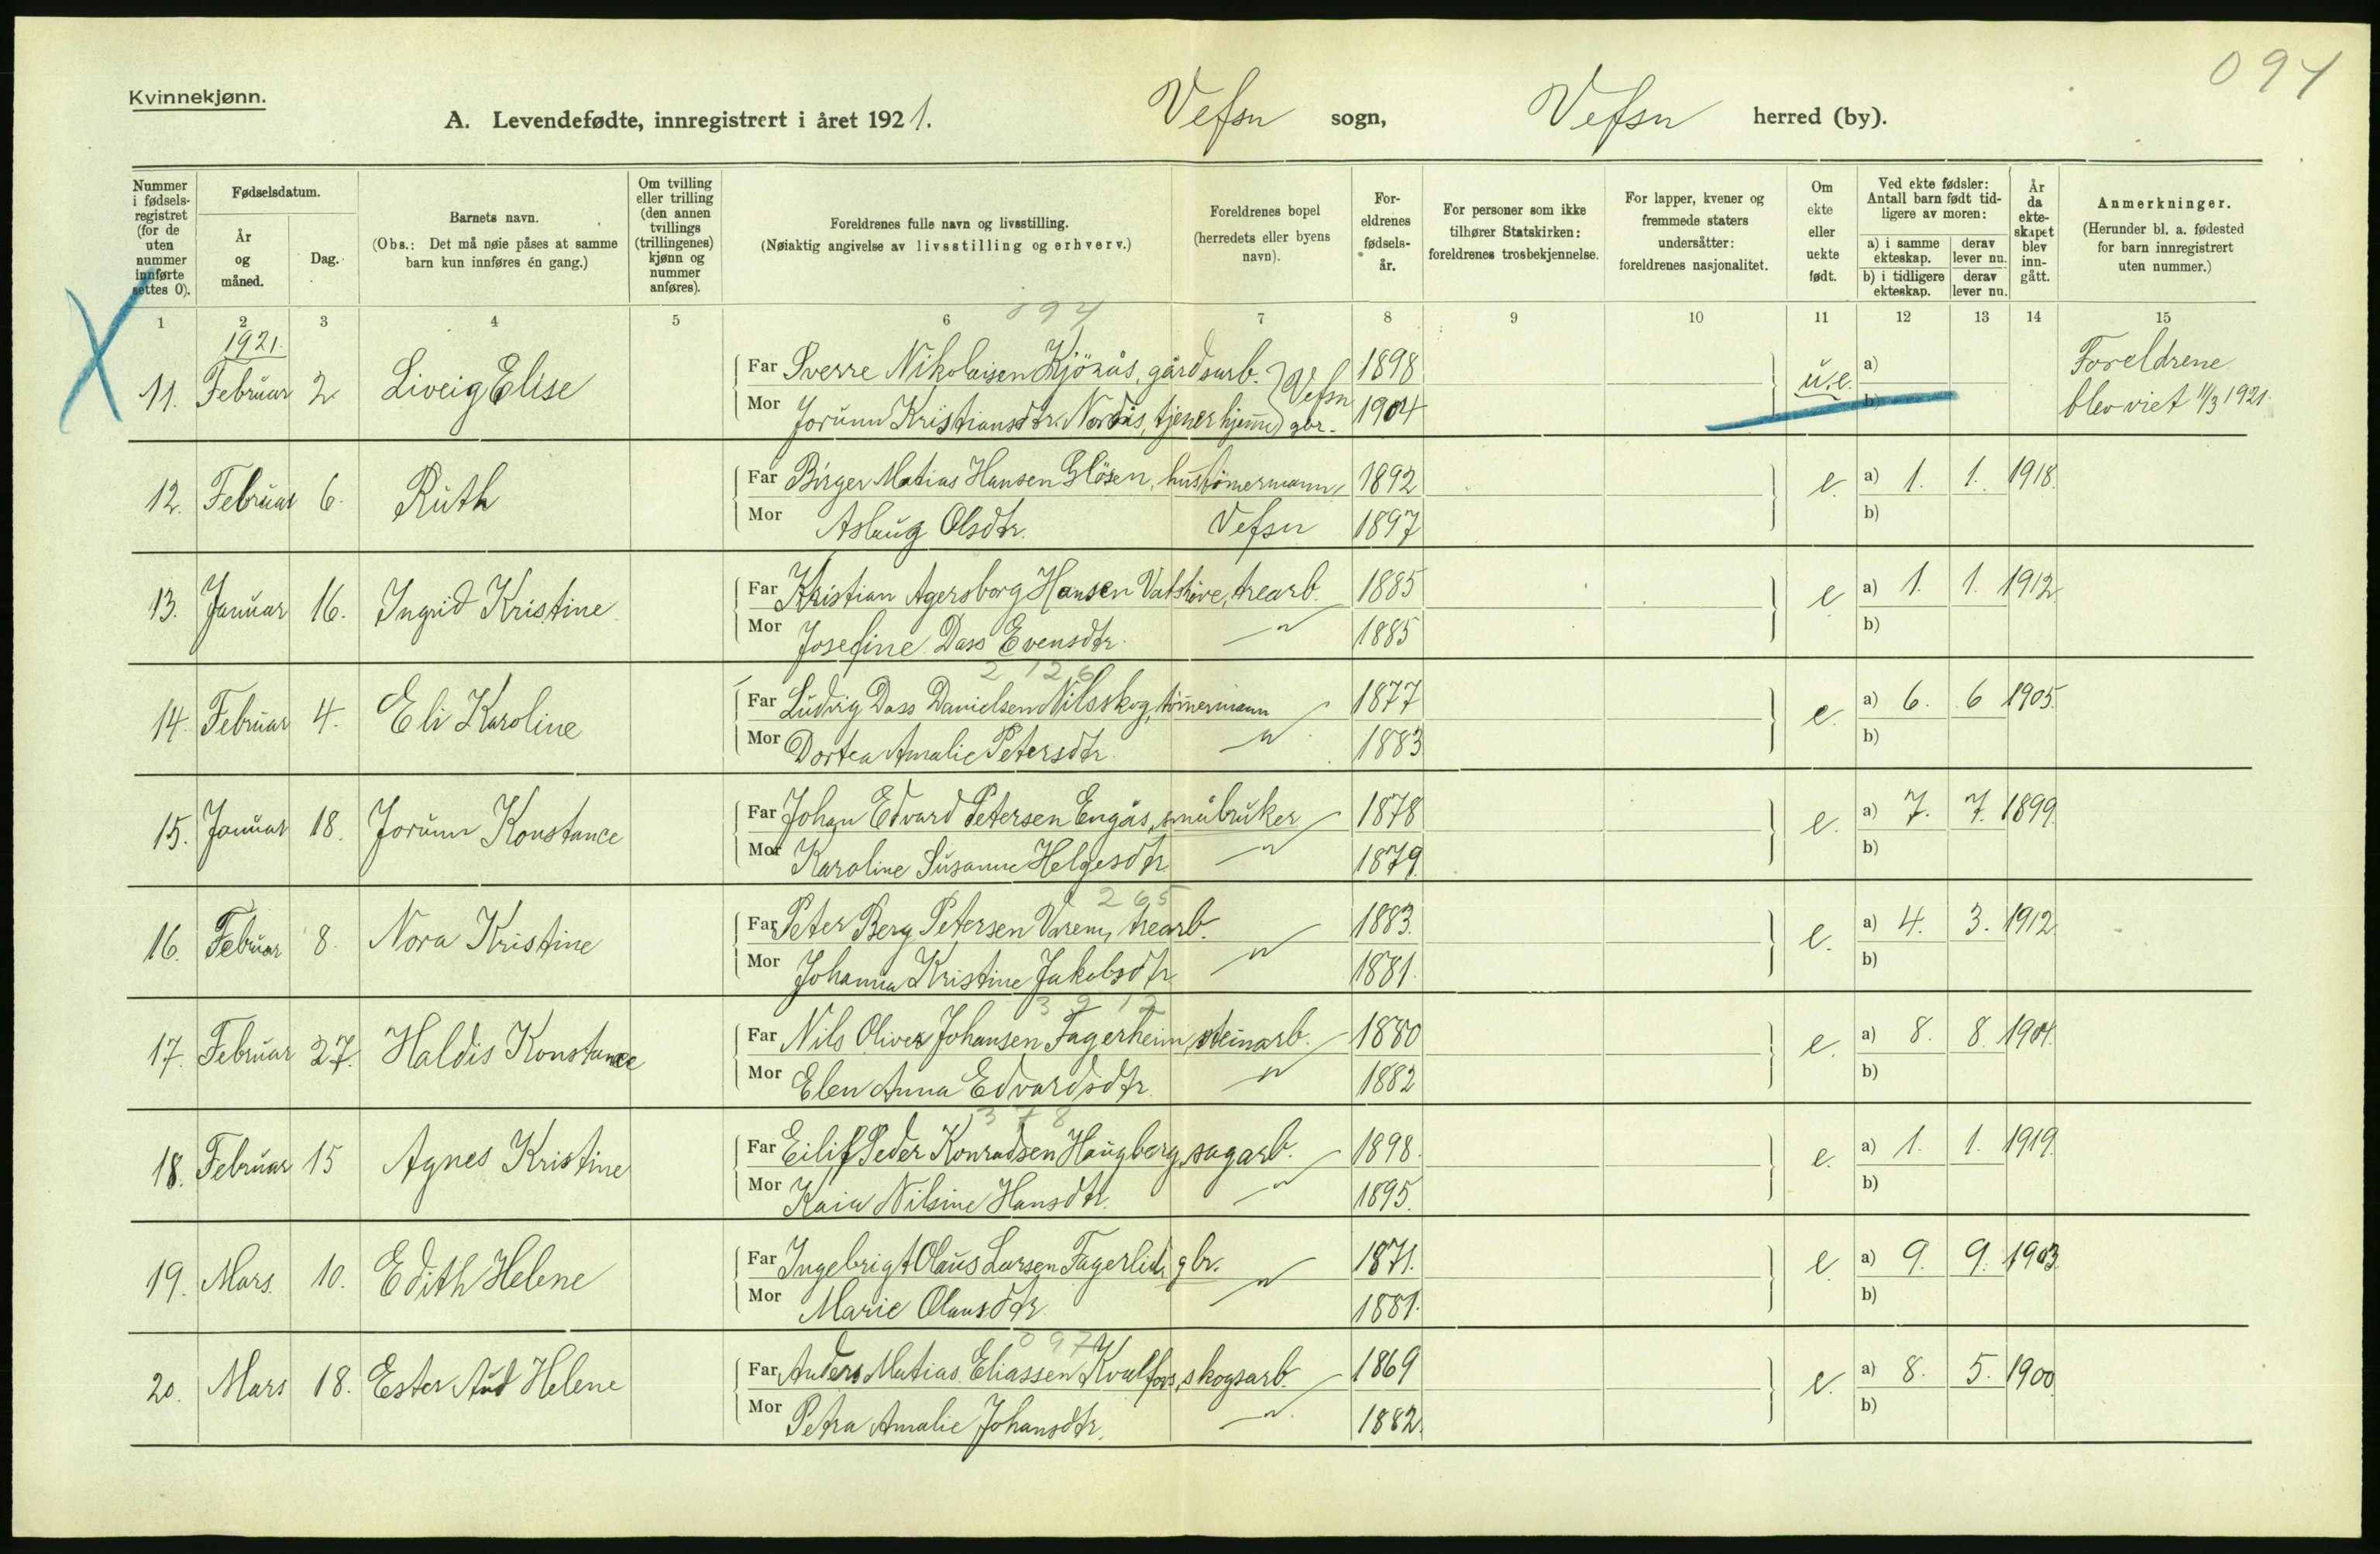 094
Kvinnekjønn.
A. Levendefødte, innregistrert i året 1921. Vefsn sogn, Vefsn herred (by).
Nummer i fødsels-registret (for de uten nummer innførte settes 0).
Fødselsdatum.
År og måned.
Dag.
Barnets navn.
(Obs.: Det må nøie påses at samme barn kun innføres én gang.)
Om tvilling eller trilling (den annen tvillings (trillingenes) kjønn og nummer anføres).
Foreldrenes fulle navn og livsstilling.
(Nøiaktig angivelse av livsstilling og erhverv.)
Foreldrenes bopel (herredets eller byens navn).
For-eldrenes fødsels-år.
For personer som ikke tilhører Statskirken: foreldrenes trosbekjennelse.
For lapper, kvener og fremmede staters undersåtter: foreldrenes nasjonalitet.
Om ekte eller uekte født.
Ved ekte fødsler: Antall barn født tid-ligere av moren:
a) i samme ekteskap. derav lever nu.
b) i tidligere ekteskap. derav lever nu.
År da ekte-skapet blev inn-gått.
Anmerkninger.
(Herunder bl. a. fødested for barn innregistrert uten nummer.)
1 2 3 4 5 6 7 8 9 10 11 12 13 14 15
094
1921.
11. Februar 2 Liveig Elise Far Sverre Nikolaisen Kjörås, gårdsarb. Vefsn 1898 u.e. a) Foreldrene
Mor Jorunn Kristiansdtr. Nordås, tjener hjemme gbr. 1904 b) blev viet 11/3 1921.
12. Februar 6. Ruth Far Birger Matias Hansen Glösen, hustömermann, 1892 e. a) 1. 1. 1918.
Mor Aslaug Olsdtr. Vefsn 1897 b)
13. Januar 16. Ingrid Kristine Far Kristian Agersborg Hansen trearb. 1885 e a) 1. 1. 1912
Mor Josefine Dass Evensdtr. —"— 1885 b)
2126
14. Februar 4. Eli Karoline Far Ludvig Dass Danielsen Nilsskog, tömmermann 1877 e. a) 6. 6 1905.
Mor Dortea Amalie Petersdtr. —"— 1883 b)
15. Januar 18. Jorunn Konstance Far Johan Edvard Petersen Engås, småbruker 1878 e. a) 7. 7. 1899.
Mor Karoline Susanne Helgesdtr. —"— 1879. b)
265
16. Februar 8. Nora Kristine Far Peter Berg Petersen trearb. 1883. e. a) 4. 3. 1912.
Mor Johanna Kristine Jakobsdtr. —"— 1881. b)
3912
17. Februar 27. Haldis Konstance Far Nils Oliver Johansen Fagerheim, steinarb. 1880 e. a) 8. 8. 1904.
Mor Elen Anna Edvardsdtr. —"— 1882 b)
378
18. Februar 15 Agnes Kristine Far Eilif Peder Konradsen Haugberg, sagarb. 1898. e. a) 1. 1. 1919.
Mor Kaia Nilsine Hansdtr. —"— 1895. b)
19. Mars. 10. Edith Helene Far Ingebrigt Olaus Larsen Fagerlid, gbr. 1871. e a) 9. 9. 1903.
Mor Marie Olausdtr. —"— 1881. b)
097
20. Mars 18. Ester Aud Helene Far Anders Matias Eliassen Kvalfors, skogsarb. 1869 e. a) 8. 5. 1900
Mor Petra Amalie Johansdtr. —"— 1882. b)